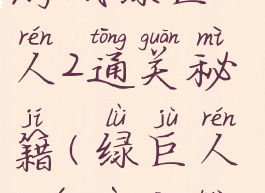 rén tōng guān mì
人2通关秘
jí lǜ jù rén
籍(绿巨人